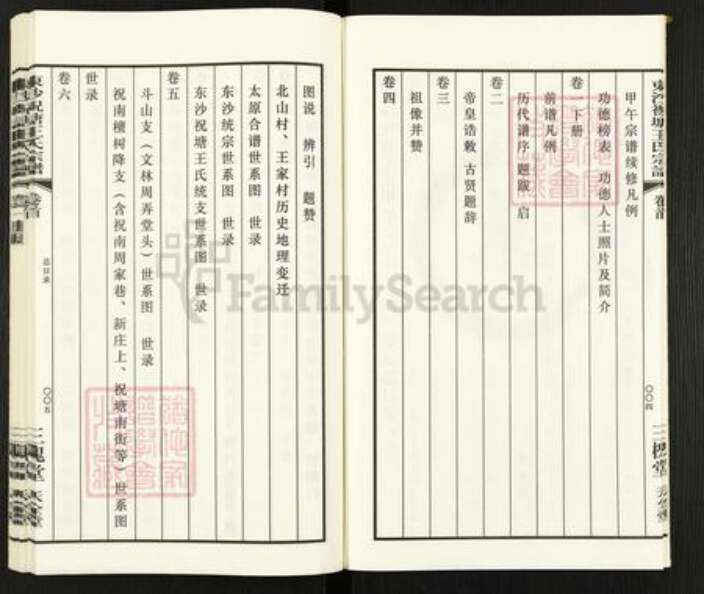 東沙祝塘王氏宗譜
卷首
〇〇四
三槐堂
甲午宗谱续修凡例
功德榜表 功德人士照片及简介
卷一 下册
前谱凡例
历代谱序 题跋 启
卷二
帝皇诰敕 古贤题辞
卷三
祖像并赞
卷四
图说 辨引 题赞
北山村、王家村历史地理变迁
太原合谱世系图 世录
东沙统宗世系图 世录
东沙祝塘王氏统支世系图 世录
卷五
斗山支（文林周弄堂头）世系图 世录
祝南檀树降支（含祝南周家巷、新庄上、祝塘南街等）世系图
世录
卷六
東沙祝塘王氏宗譜
卷首
总目录
〇〇五
三槐堂
FamilySearch